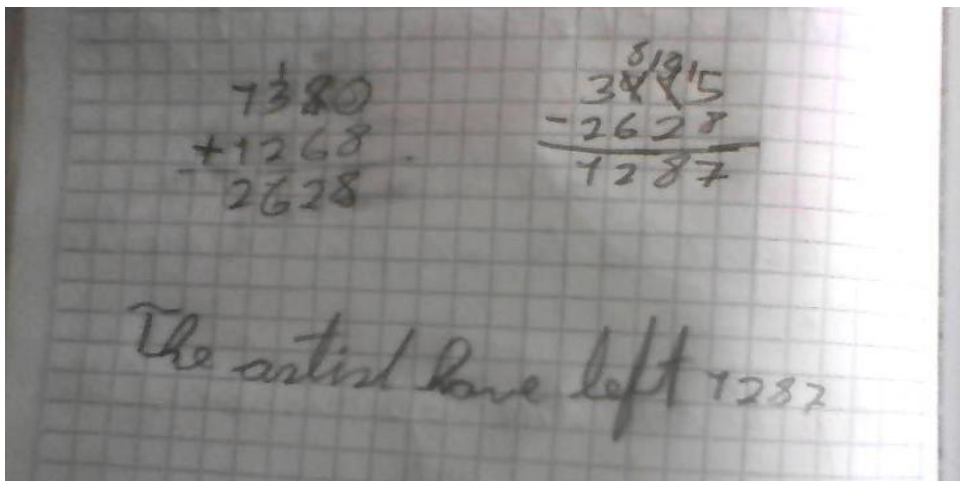 1
1380
+1268
2628
8 10 1
3915
-2628
1287
The artist have left 1287